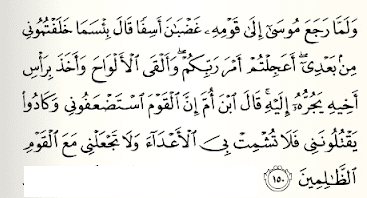 وَلَمَّا رَجَعَ مُوسَىٰٓ إِلَىٰ قَوْمِهِۦ غَضْبَٰنَ أَسِفًا قَالَ بِئْسَمَا خَلَفْتُمُونِي
مِنۢ بَعْدِيٓۖ أَعَجِلْتُمْ أَمْرَ رَبِّكُمْۖ وَأَلْقَى ٱلْأَلْوَاحَ وَأَخَذَ بِرَأْسِ
أَخِيهِ يَجُرُّهُۥٓ إِلَيْهِۚ قَالَ ٱبْنَ أُمَّ إِنَّ ٱلْقَوْمَ ٱسْتَضْعَفُونِي وَكَادُوا۟
يَقْتُلُونَنِي فَلَا تُشْمِتْ بِيَ ٱلْأَعْدَآءَ وَلَا تَجْعَلْنِي مَعَ ٱلْقَوْمِ
ٱلظَّٰلِمِينَ ١٥٠